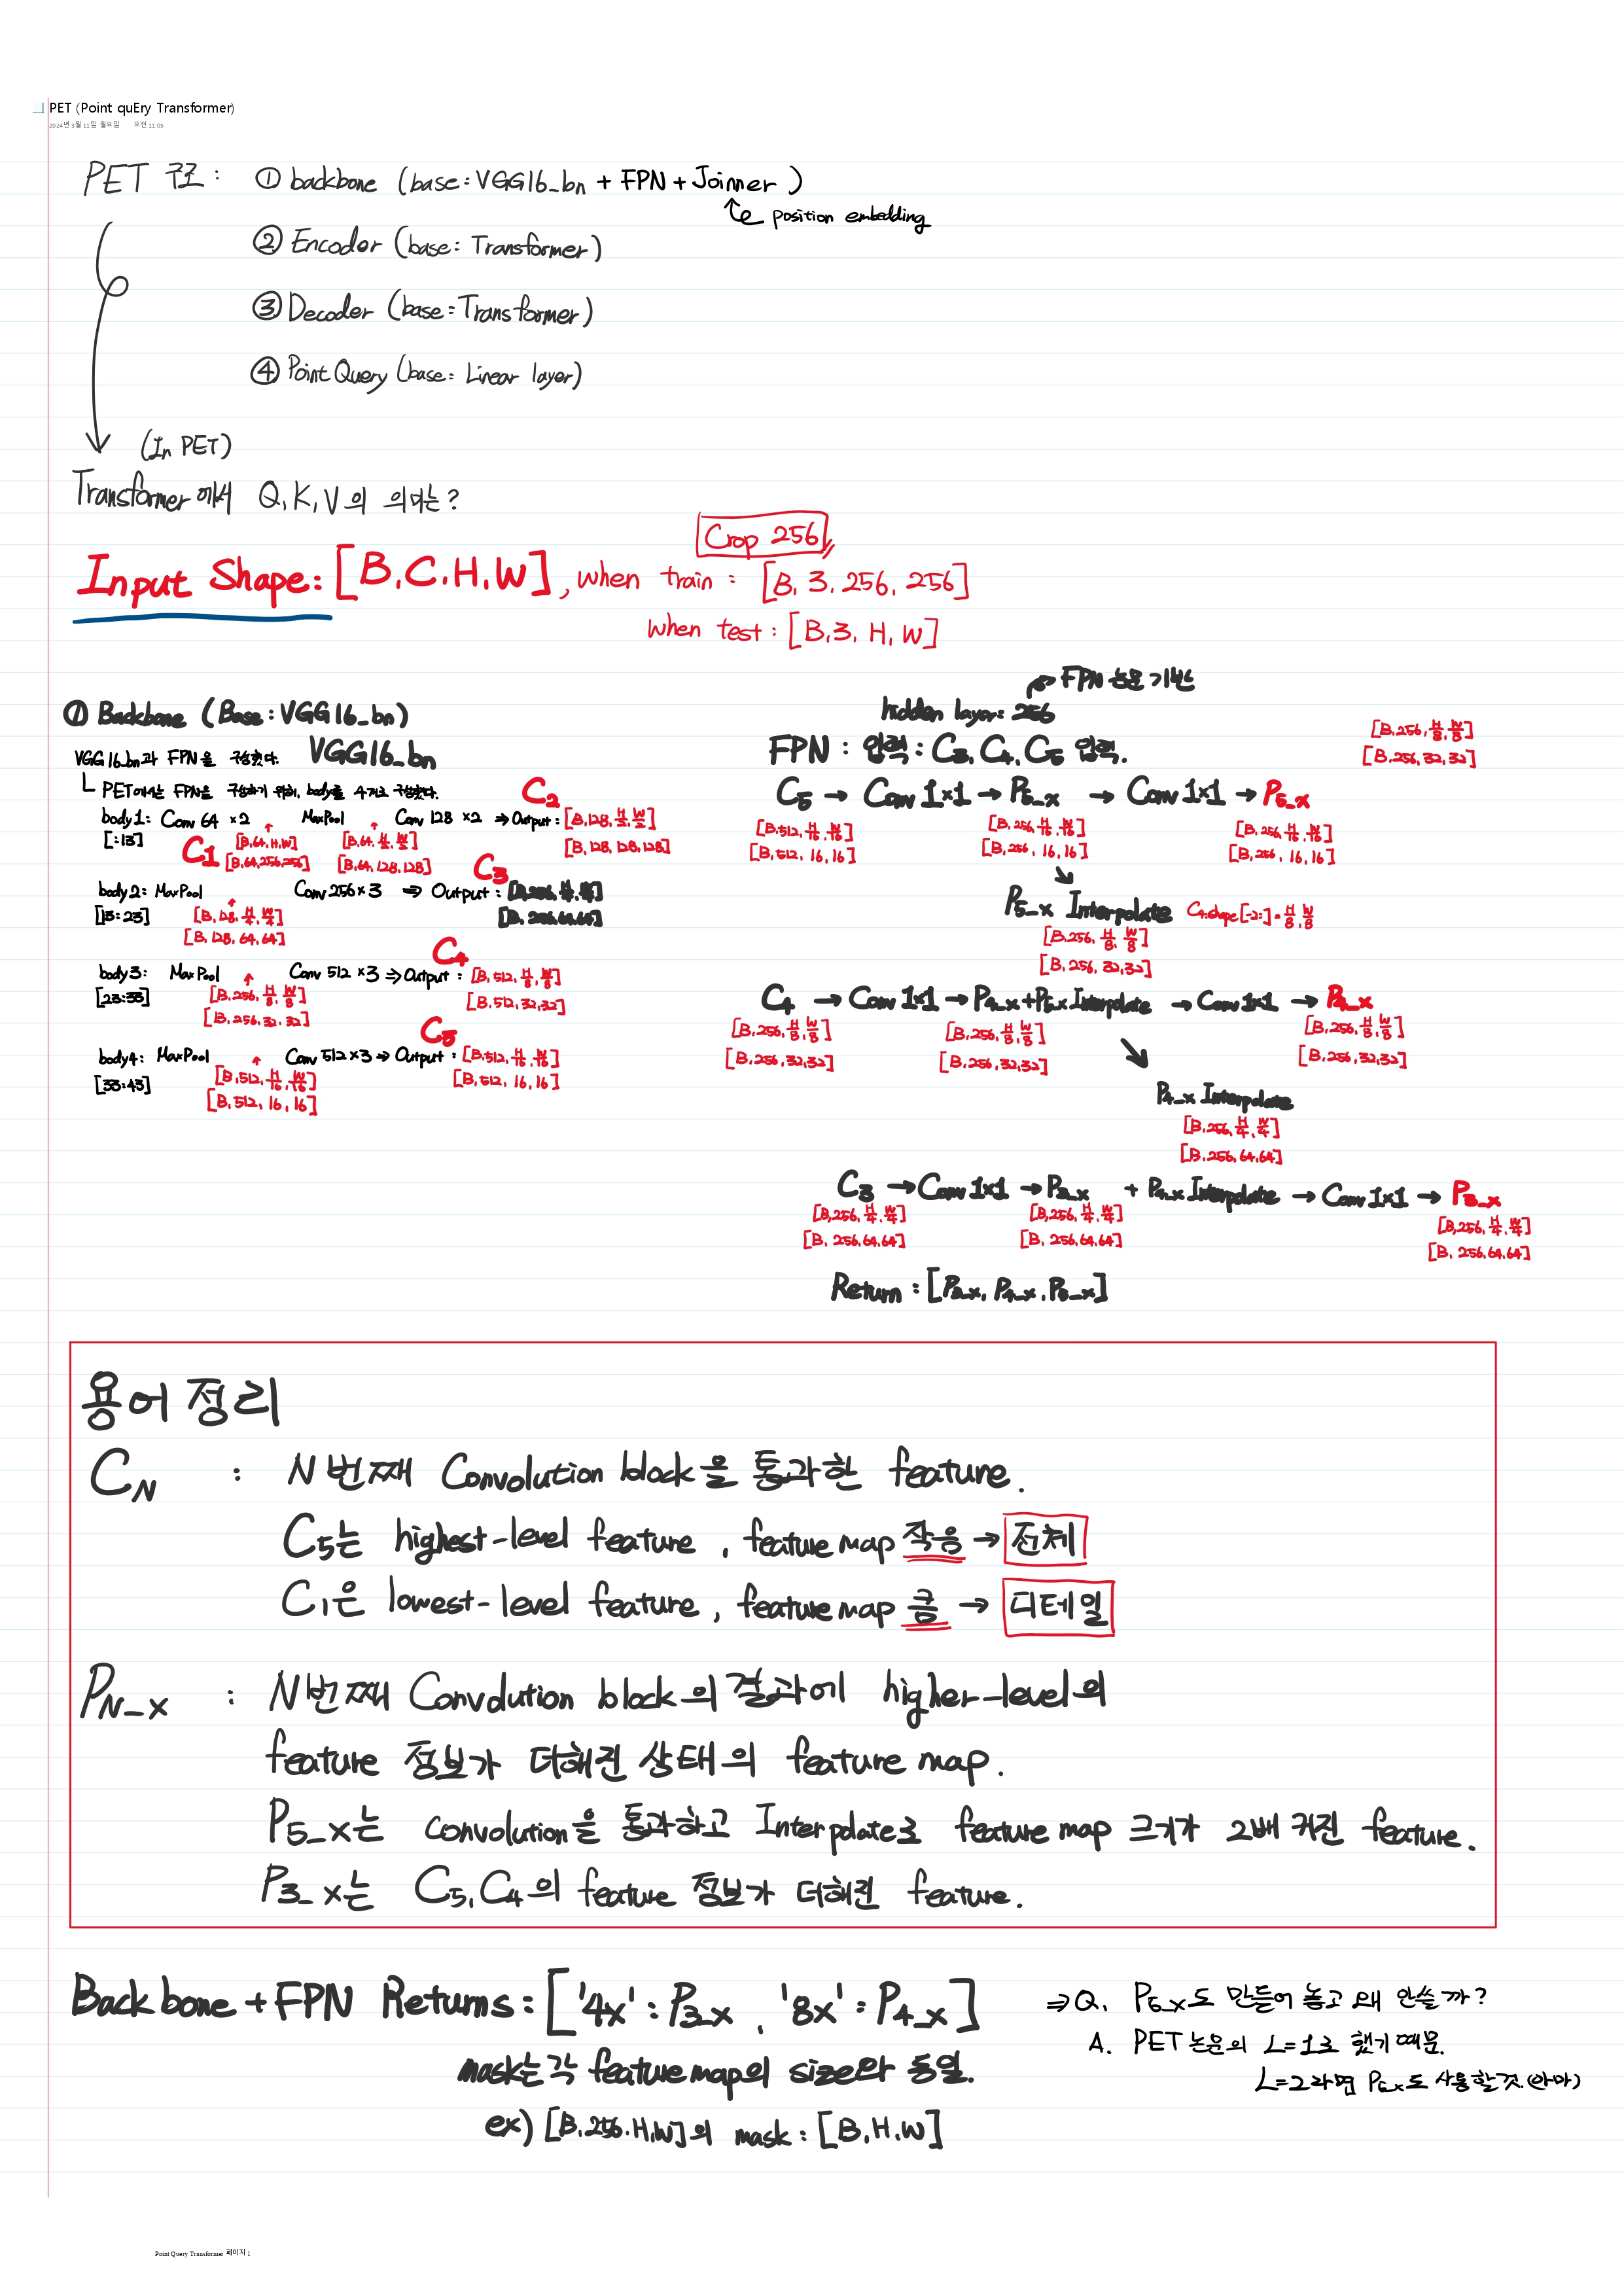 PET (Point quEry Transformer)
2024년 3월 11일 월요일 오전 11:05
PET 구조 : ① backbone (base: VGG16_bn + FPN + Joinner )
position embedding
② Encoder (base: Transformer)
③ Decoder (base=Transformer)
④ Point Query (base: Linear layer)
(In PET)
Transformer에서 Q, K, V의 의미는?
Crop 256
Input Shape: [B.C.H.W], when train : [B, 3, 256, 256]
when test : [B, 3, H, W]
① Backbone (Base: VGG16_bn)
VGG16_bn과 FPN을 구성했다. VGG16_bn
PET에서는 FPN을 구성하기 위해, body를 4개로 구성했다.
C2
body1: Conv 64 ×2 MaxPool Conv 128 ×2 ⇒ Output: [B,128,H/2,W/2]
[:13] C1 [B,64,H,W] [B,64,H/2,W/2] [B,128,128,128]
[B,64,256,256] [B,64,128,128]
C3
body2: MaxPool Conv 256×3 ⇒ Output: [B,256,H/4,W/4]
[13:23] [B,128,H/4,W/4] [B,256,64,64]
[B,128,64,64]
C4
body3: MaxPool Conv 512 ×3 ⇒ Output : [B,512,H/8,W/8]
[23:33] [B,256,H/8,W/8] [B,512,32,32]
[B,256,32,32]
C5
body4: MaxPool Conv 512×3 → Output : [B,512,H/16,W/16]
[33:43] [B,512,H/16,W/16] [B,512,16,16]
[B,512,16,16]
FPN 논문 기반
hidden layer: 256
FPN : 입력 : C3, C4, C5 입력.
[B,256,H/8,W/8]
[B,256,32,32]
C5 → Conv 1×1 → P5_x → Conv 1×1 → P5_x
[B,512,H/16,W/16] [B,256,H/16,W/16] [B,256,H/16,W/16]
[B,512,16,16] [B,256,16,16] [B,256,16,16]
P5_x Interpolate C4.shape[-2:] = H/8, W/8
[B,256,H/8,W/8]
[B,256,32,32]
C4 → Conv 1×1 → P4_x+P5_x Interpolate → Conv 1×1 → P4_x
[B,256,H/8,W/8] [B,256,H/8,W/8] [B,256,H/8,W/8]
[B,256,32,32] [B,256,32,32] [B,256,32,32]
P4_x Interpolate
[B,256,H/4,W/4]
[B,256,64,64]
C3 → Conv 1×1 → P3_x + P4_x Interpolate → Conv 1×1 → P3_x
[B,256,H/4,W/4] [B,256,H/4,W/4] [B,256,H/4,W/4]
[B,256,64,64] [B,256,64,64] [B,256,64,64]
Return : [P3_x, P4_x, P5_x]
용어 정리
CN : N번째 Convolution block을 통과한 feature.
C5는 highest-level feature, feature map 작음 → 전체
C1은 lowest-level feature, feature map 큼 → 디테일
PN_x : N번째 Convolution block의 결과에 higher-level의
feature 정보가 더해진 상태의 feature map.
P5_x는 convolution을 통과하고 Interpolate로 feature map 크기가 2배 커진 feature.
P3_x는 C5, C4의 feature 정보가 더해진 feature.
Backbone + FPN Returns: ['4x': P3_x, '8x': P4_x]
⇒ Q. P5_x도 만들어 놓고 왜 안쓸까?
A. PET 논문의 L=1로 했기 때문.
L=2라면 P5_x도 사용할것.(아마)
mask는 각 feature map의 size와 동일.
ex) [B.256.H.W]의 mask : [B.H.W]
Point Query Transformer 페이지 1